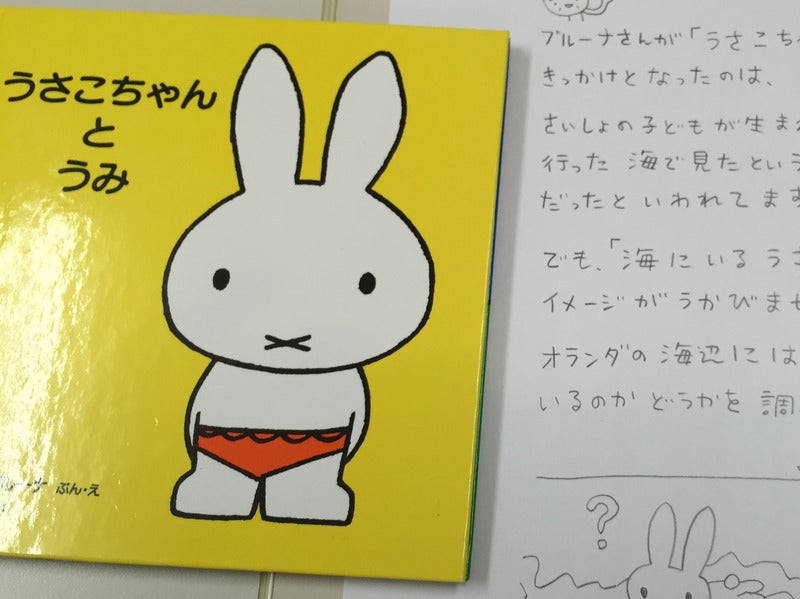 うさこちゃん
と
うみ
ぶん・え
ブルーナさんが「うさこち
きっかけとなったのは、
さいしょの子どもが生ま
行った 海で見たという
だったと いわれてます
でも、「海にいる うさ
イメージが うかびませ
オランダの 海辺には
いるのか どうかを 調
?